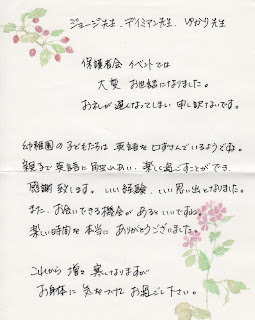 ジョージ先生、デイミアン先生、ゆかり先生
保護者会 イベントでは
大変 お世話になりました。
お礼が遅くなってしまい 申し訳ないです。
幼稚園の子どもたちは 英語を口ずさんでいるようですね。
親まで英語に 触れあい、楽しく過ごすことができ、
感謝 致します。いい経験、いい思い出となりました。
また、お会いできる機会が あるといいですね。
楽しい時間を 本当に ありがとうございました。
これから 増々 寒くなりますが
お身体に 気をつけて お過ごし下さい。